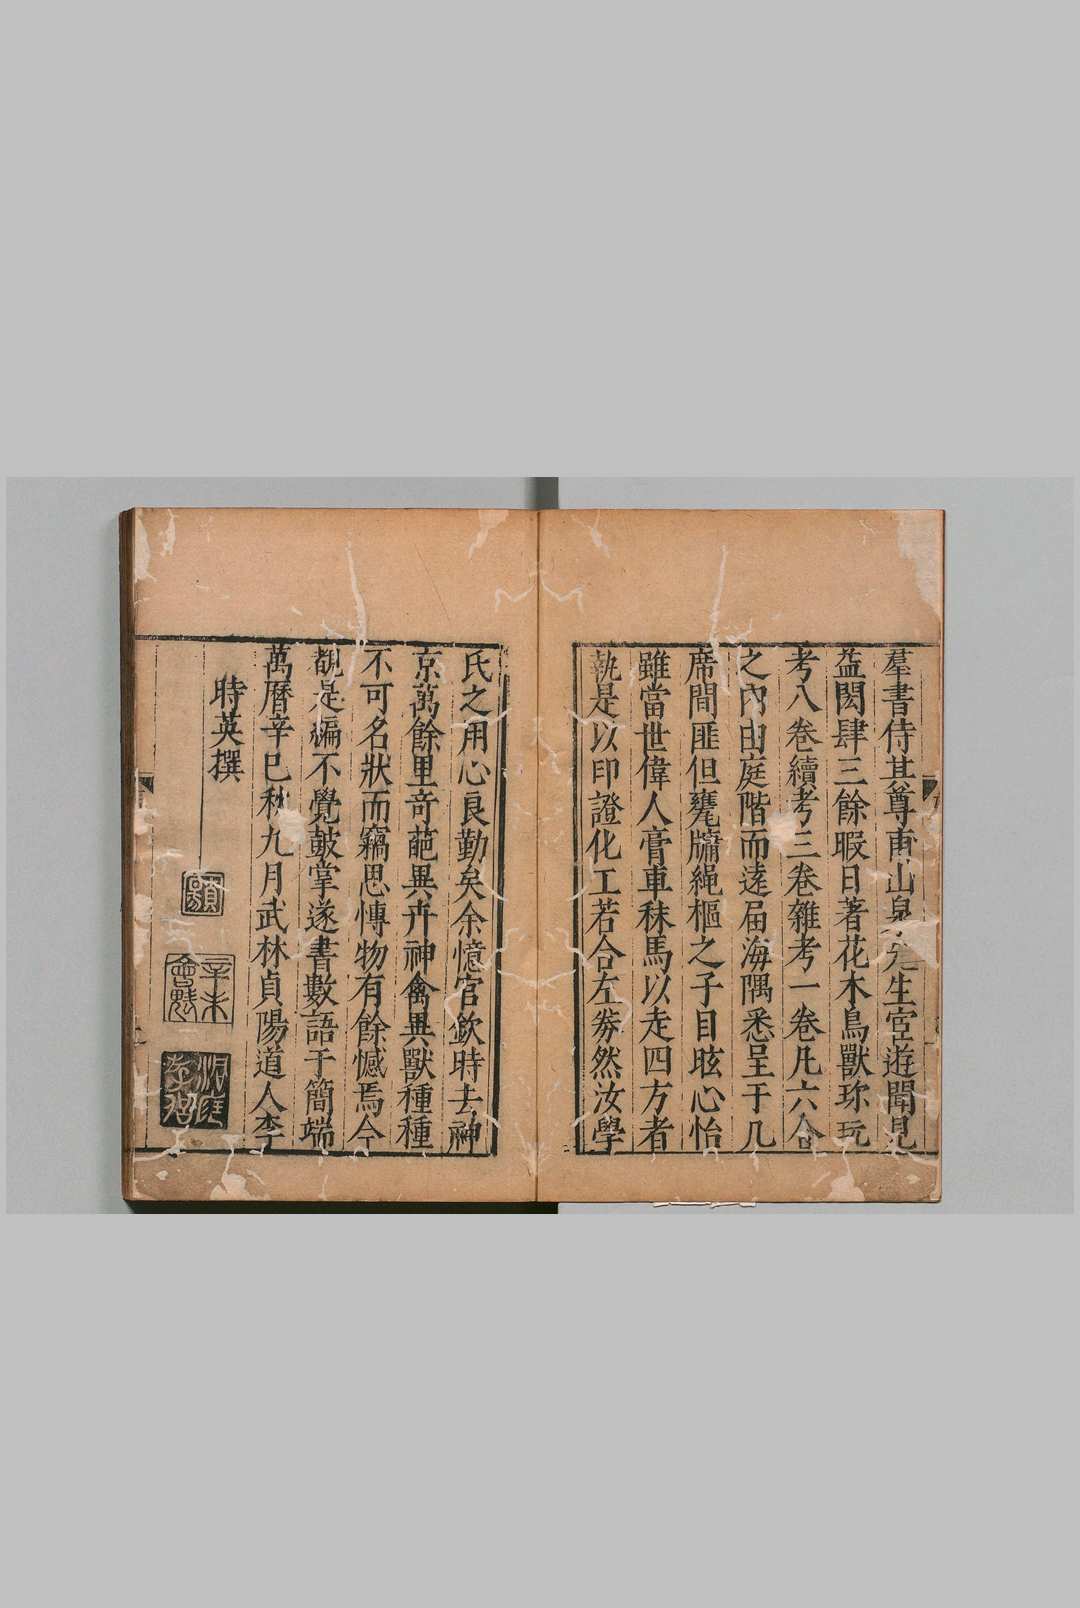 羣書侍其尊甫山泉先生宦遊聞見
益閎肆三餘暇日著花木鳥獸珎玩
考八卷續考三卷雜考一卷凡六合
之內由庭階而逺屆海隅悉呈于几
席間匪但甕牖繩樞之子目眩心怡
雖當世偉人膏車秣馬以走四方者
執是以印證化工若合左劵然汝學
氏之用心良勤矣余憶官欽時去神
京萬餘里奇葩異卉神禽異獸種種
不可名狀而竊思慱物有餘憾焉今
覩是編不覺鼓掌遂書數語于簡端
萬曆辛巳秋九月武林貞陽道人李
時英撰
辛未
會魁